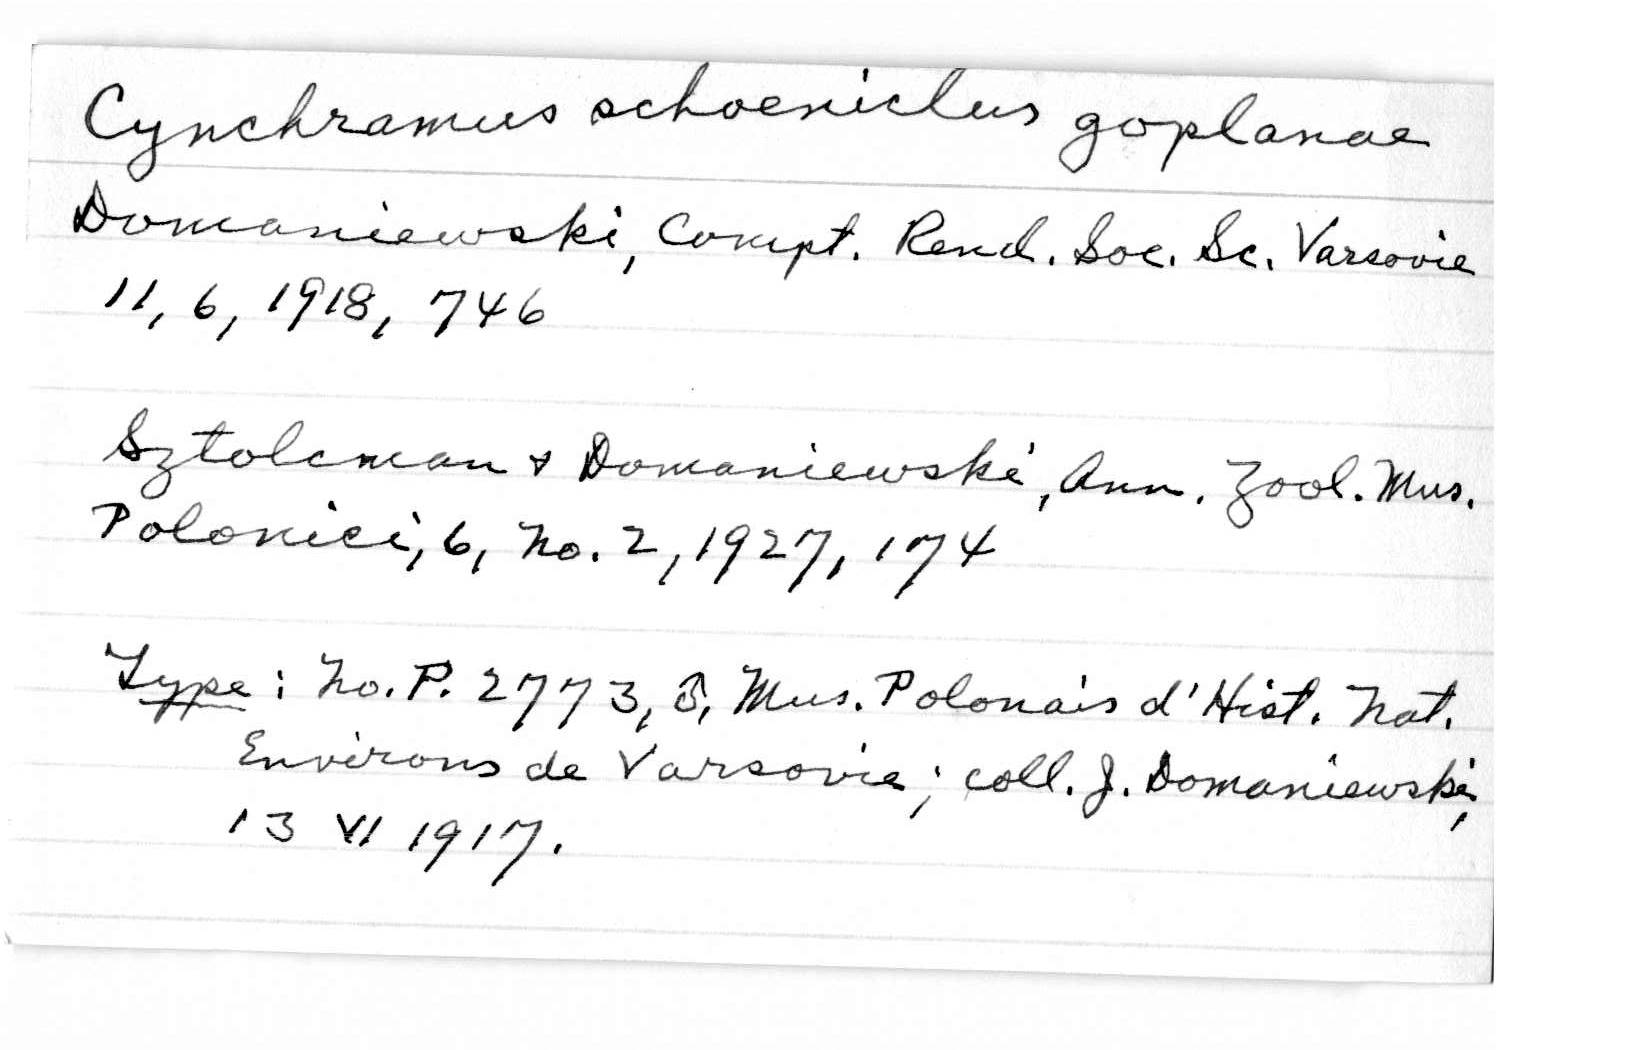 Cynchramus schoeniclus goplanae
Domaniewski, Compt. Rend. Soc. Sc. Varsovie
11, 6, 1918, 746
Sztolcman & Domaniewski, Ann. Zool. Mus.
Polonici, 6, No. 2, 1927, 174
Type: No. P. 2773, ♂, Mus. Polonais d'Hist. Nat.
Environs de Varsovie; coll. J. Domaniewski,
13 VI 1917.